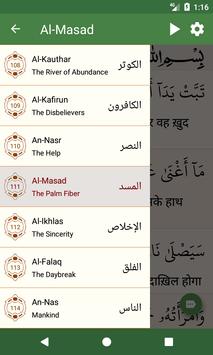 1:16
Al-Masad
108
Al-Kauthar
The River of Abundance
الكوثر
109
Al-Kafirun
The Disbelievers
الكافرون
An-Nasr
The Help
النصر
111
Al-Masad
The Palm Fiber
المسد
Al-Ikhlas
The Sincerity
الإخلاص
113
Al-Falaq
The Daybreak
الفلق
114
An-Nas
Mankind
الناس
بِسْمِ اللَّهِ
تَبَّتْ يَدَا
वह ख़ुद
مَا أَغْنَىٰ
के हाथ
سَيَصْلَىٰ
दाख़िल होगा
وَامْرَأَتُهُ